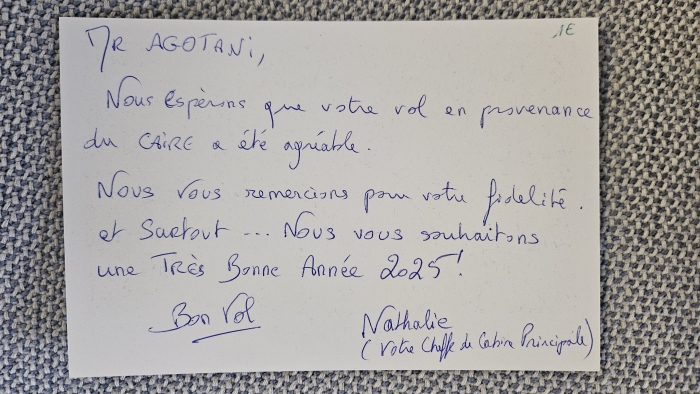 ,1E
Mr AGOTANI,
Nous Espérons que votre vol en provenance
du CAIRE a été agréable.
Nous Vous remercions pour votre fidelité.
et Surtout ... Nous vous souhaitons
une TRÈS Bonne Année 2025!
Bon Vol
Nathalie
(Votre Cheffe de Cabine Principale)